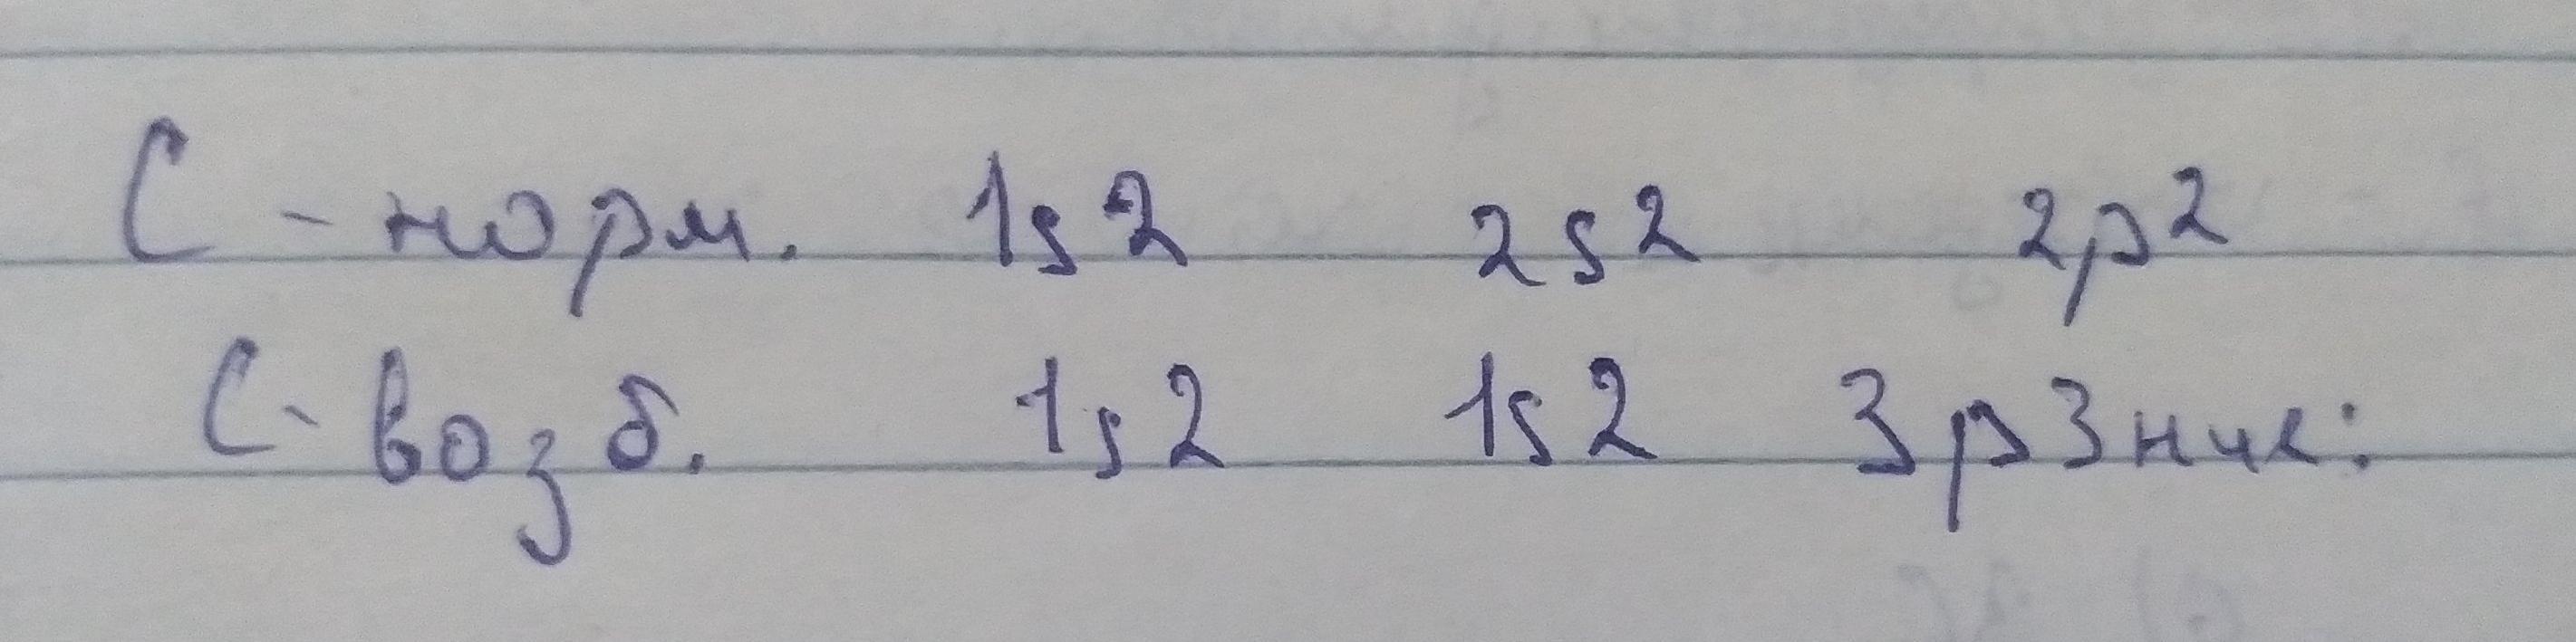 С - норм. 1s2 2s2 2p2
С - возб. 1s2 1s2 3p3 ник: